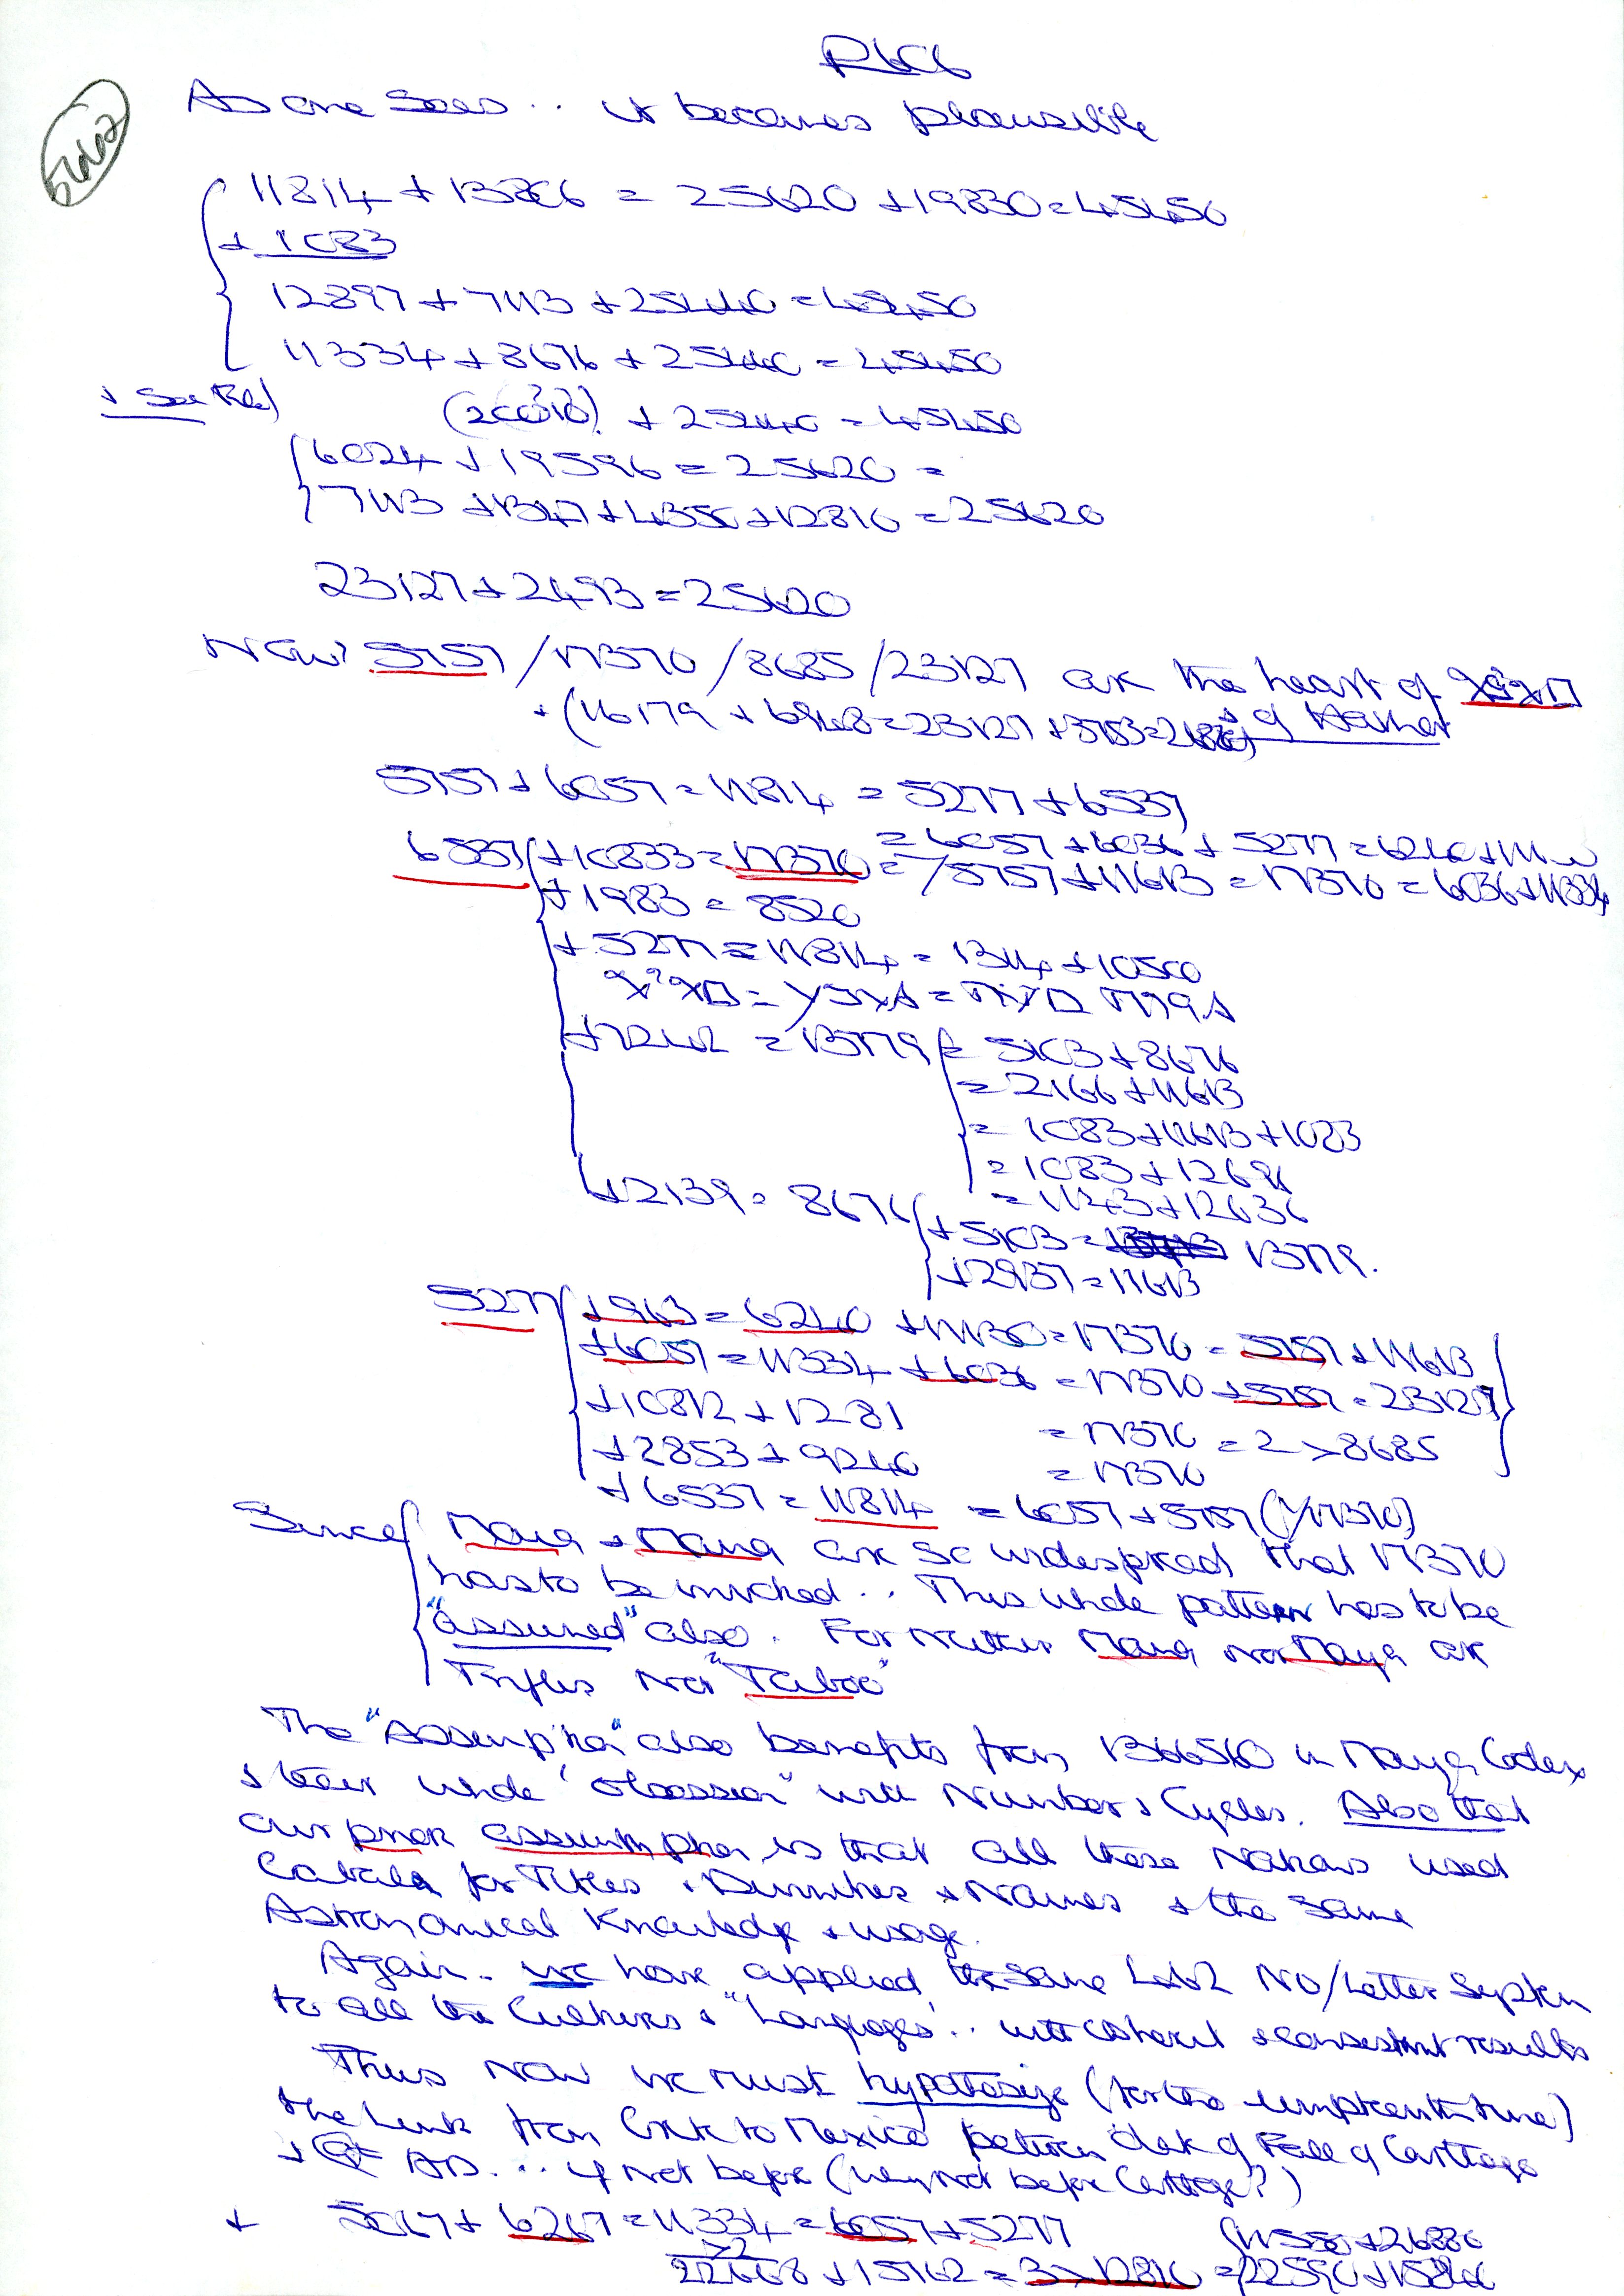 As one Sees .. it becomes plausible
11814 + 13806 = 25620 + 19830 = 45450
+ 1083
12897 + 7113 + 25440 = 45450
11334 + 8676 + 25440 = 45450
+ See
(20010) + 25440 = 45450
6024 + 19596 = 25620 =
7113 + 1347 + 4350 + 12810 = 25620
23127 + 2493 = 25620
Now 5757 / 17370 / 8685 / 23127 are the heart of
+ (16179 + 6948 = 23127 + 3753 =
5757 + 6057 = 11814 = 5277 + 6537
= 6057 + 6036 + 5277 = 6240 + 111
6537 + 10833 = 17370 = / 5757 + 11613 = 17370 = 6036 + 11334
+ 1983 = 8520
+ 5277 = 11814 = 1314 + 10500
+ 7242 = 13779 = 5103 + 8676
= 2166 + 11613
= 1083 + 11613 + 1083
= 1083 + 12696
= 1143 + 12636
+ 2139 = 8676 + 5103 = 13779.
+ 2937 = 11613
5277 + 963 = 6240 + 11130 = 17370 = 5757 + 11613
+ 6057 = 11334 + 6036 = 17370 + 5757 = 23127
+ 10812 + 1281 = 17370 = 2 > 8685
+ 2853 + 9240 = 17370
+ 6537 = 11814 = 6057 + 5757 (/17370)
Since Maya + Mana are so widespread that 17370
has to be invoked .. This whole pattern has to be
"assumed" also. For neither Mana nor Maya are
Trifles nor "Taboo"
The "Assumption" also benefits from 1366560 in Maya Codex
+ their whole "obsession" with Numbers + Cycles. Also that
our prior assumption is that all these Nations used
Cabala for Titles + Divinities + Names + the same
Astronomical Knowledge + usage.
Again .. we have applied the same No/Letter System
to all the Cultures + "Languages" .. with coherent + consistent results
Thus now we must hypothesize (for the umpteenth time)
the Link from Crete to Mexico between date of Fall of Carthage
+ AD ... if not before (why not before Carthage?)
+ 5067 + 6267 = 11334 = 6057 + 5277
>2
22668 + 15762 = 3 > 12810 = 22590 + 15840